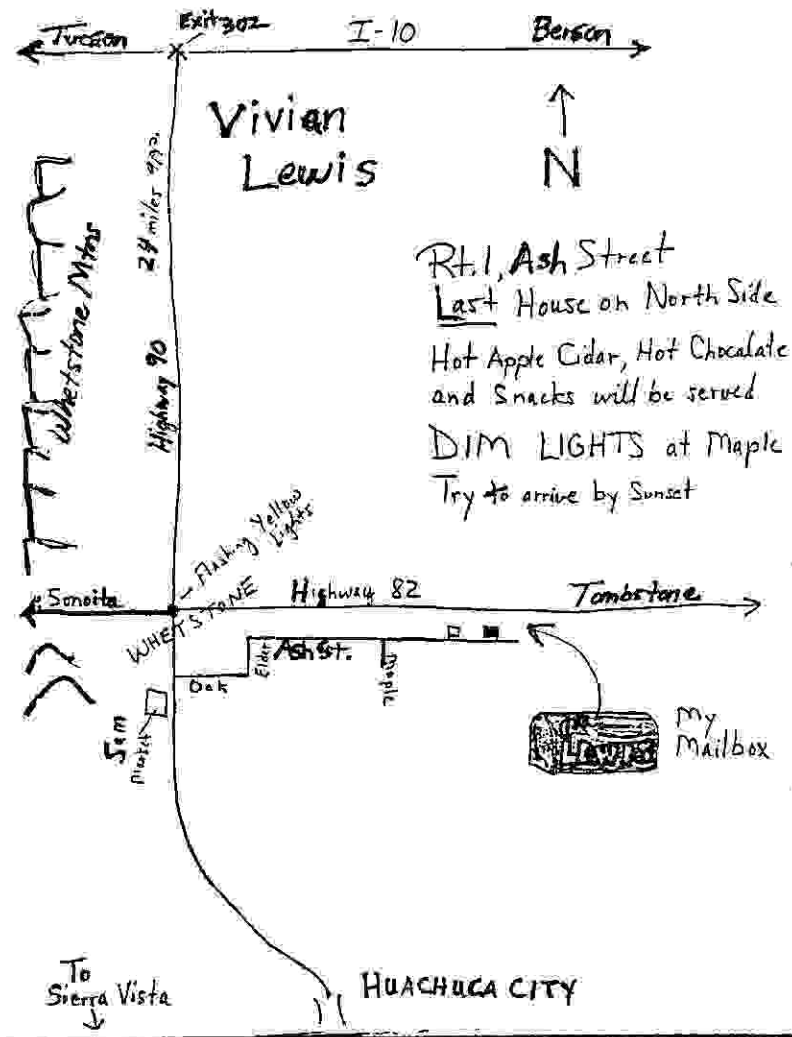 Exit 302
Tucson
I-10
Benson
Vivian
Lewis
N
24 miles apx.
Whetstone Mtns
Highway 90
Rt. 1, Ash Street
Last House on North Side
Hot Apple Cidar, Hot Chocalate
and Snacks will be served
DIM LIGHTS at Maple
Try to arrive by Sunset
Flashing Yellow
Lights
Sonoita
WHETSTONE
Highway 82
Tombstone
Elder
Ash St.
Maple
Oak
Sam
Market
Lewis
My
Mailbox
To
Sierra Vista
HUACHUCA CITY